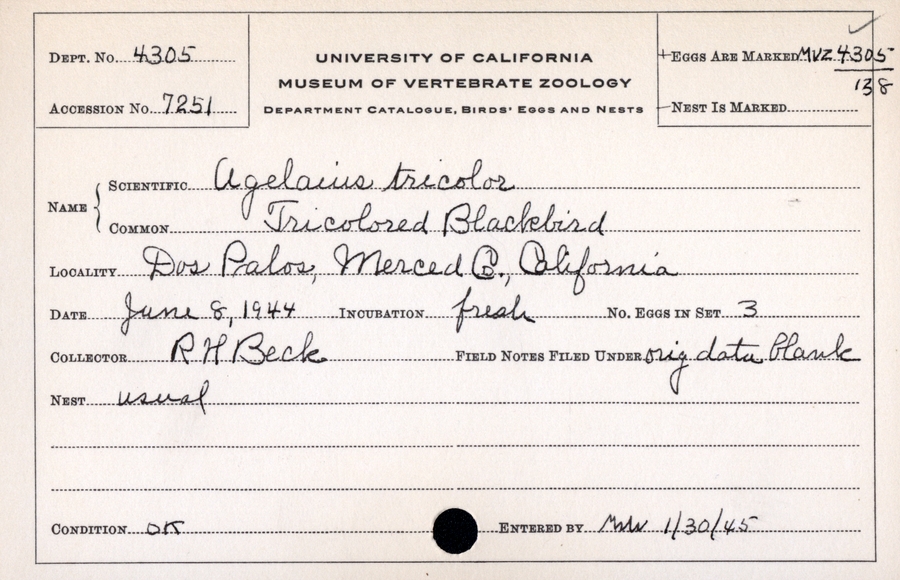 Dept. No. 4305
Accession No. 7251
UNIVERSITY OF CALIFORNIA
MUSEUM OF VERTEBRATE ZOOLOGY
Department Catalogue, Birds' Eggs and Nests
Eggs Are Marked MVZ 4305
138
Nest Is Marked
Name
Scientific Agelaius tricolor
Common Tricolored Blackbird
Locality Dos Palos, Merced Co., California
Date June 8, 1944 Incubation fresh No. Eggs in Set 3
Collector R H Beck Field Notes Filed Under orig data blank
Nest usual
Condition OK Entered by 1/30/45